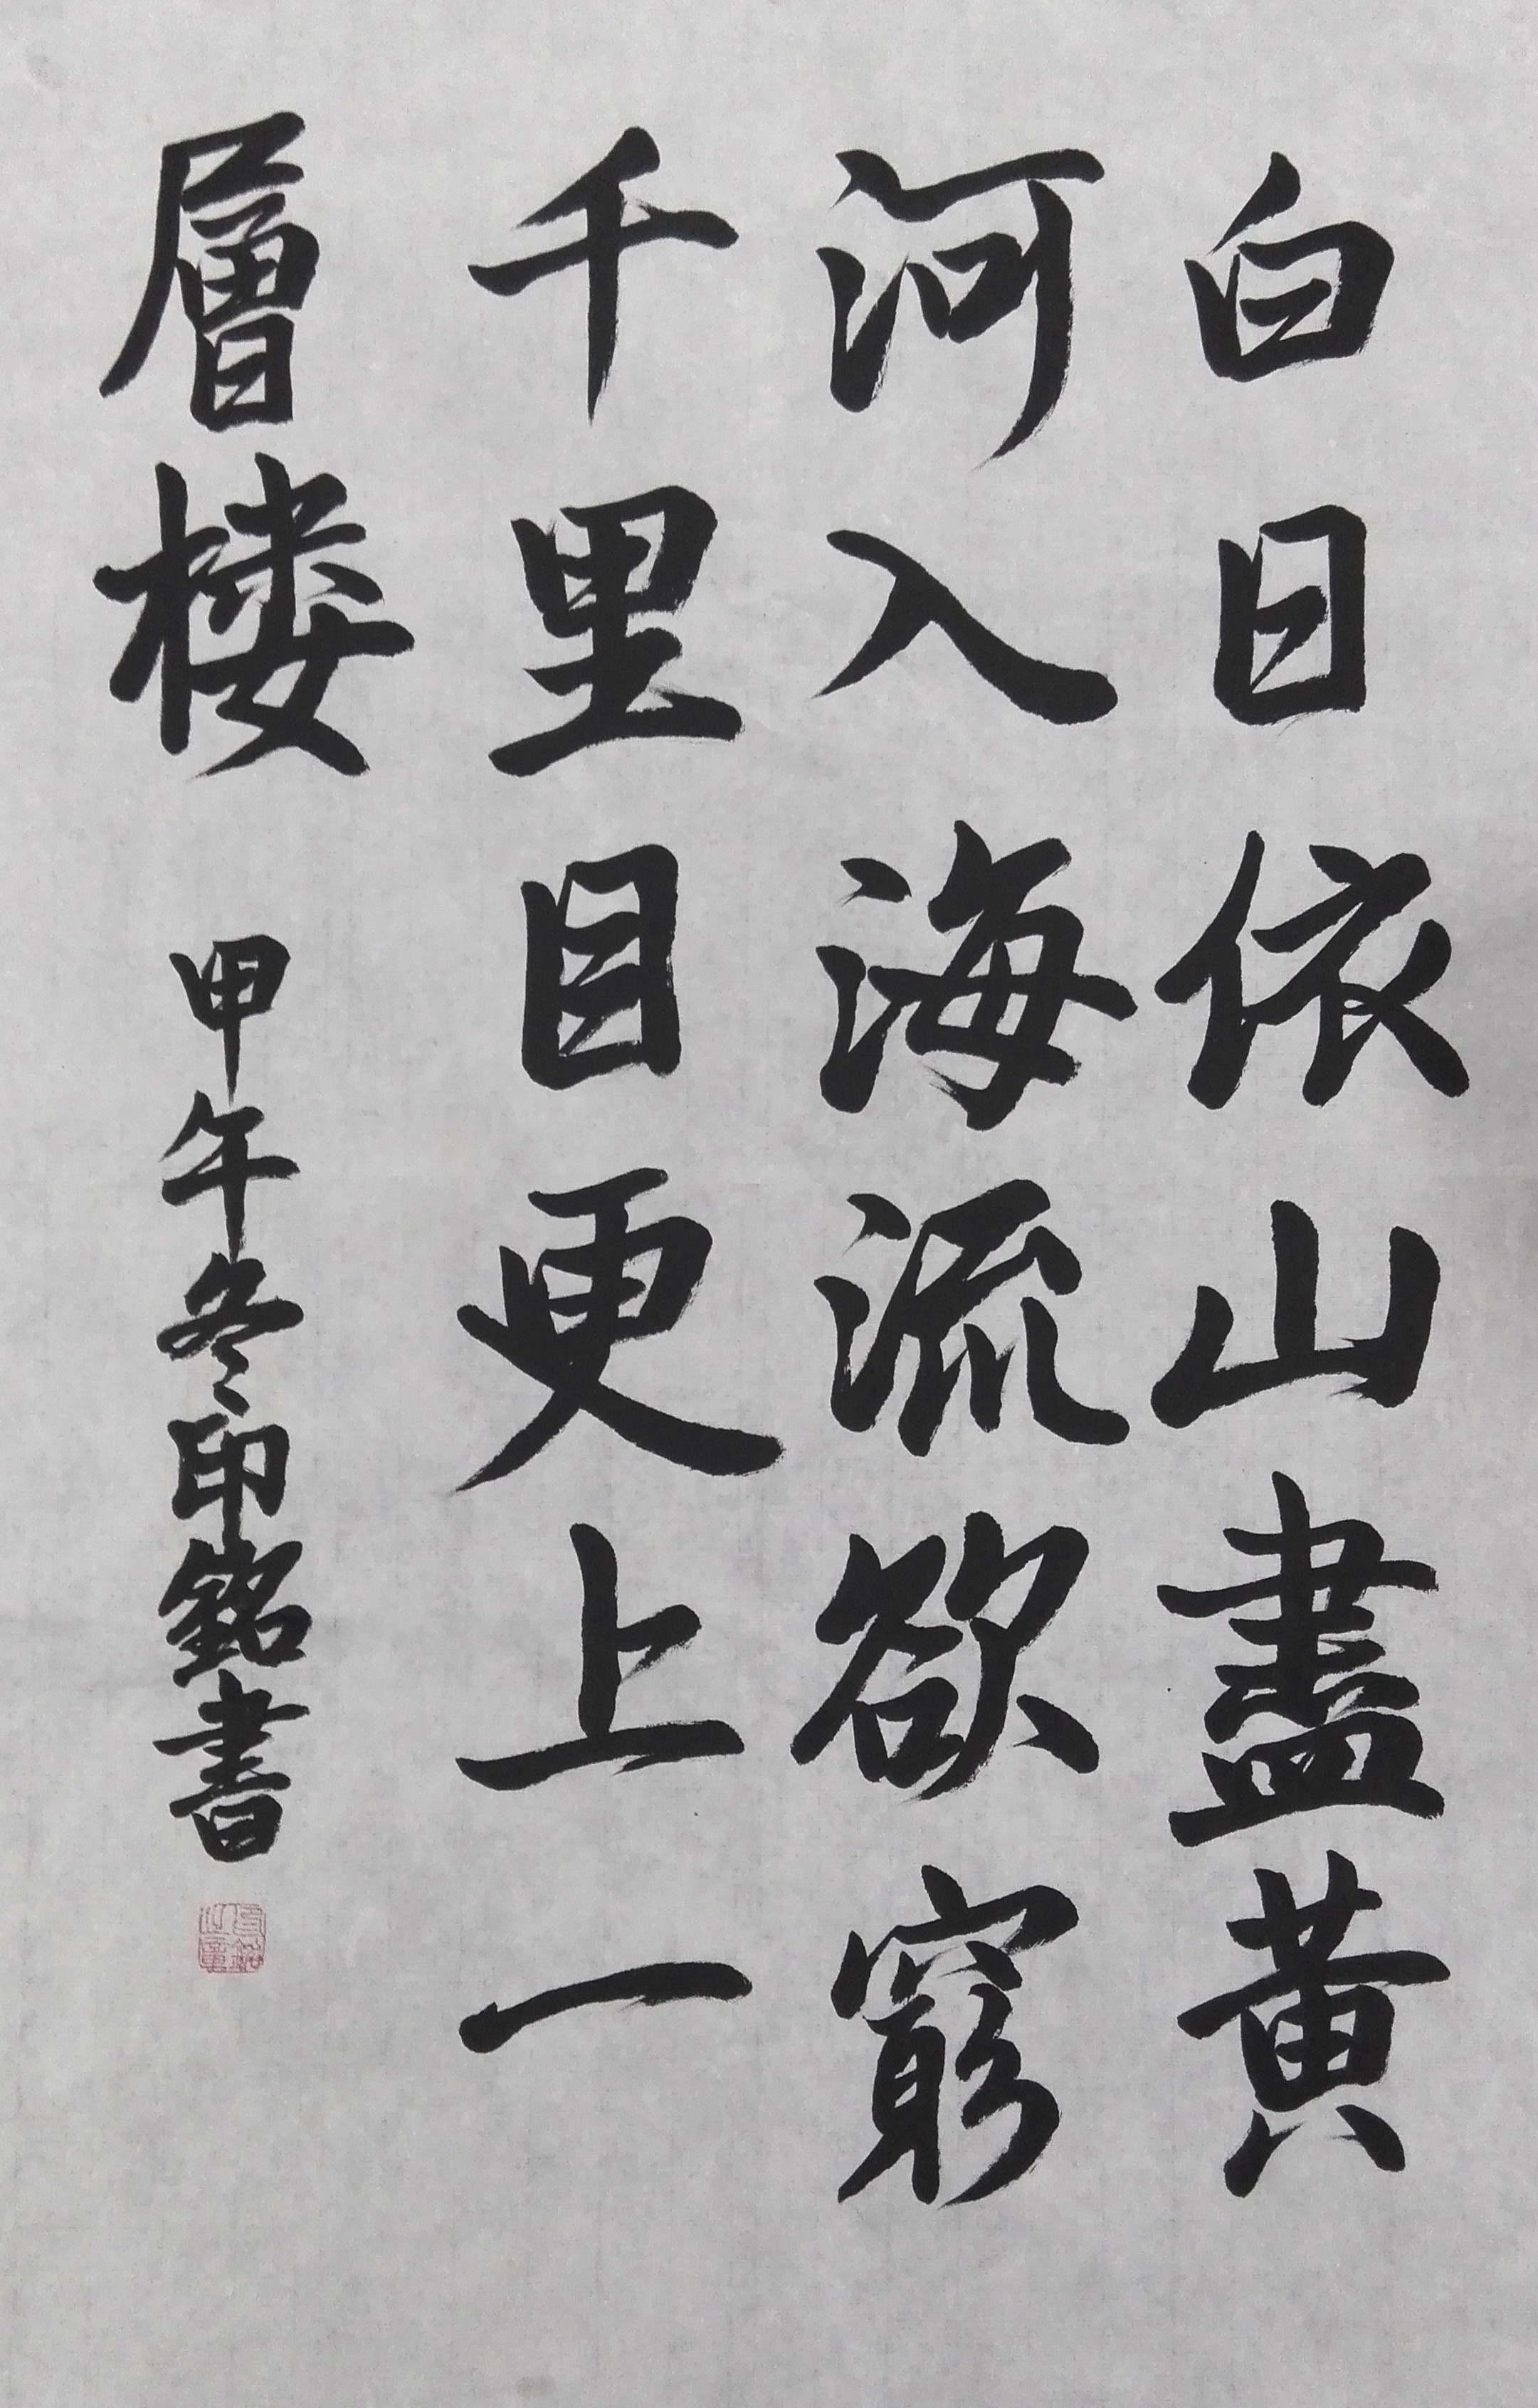 白日依山盡黄
河入海流欲窮
千里目更上一
層楼 甲午冬印銘書